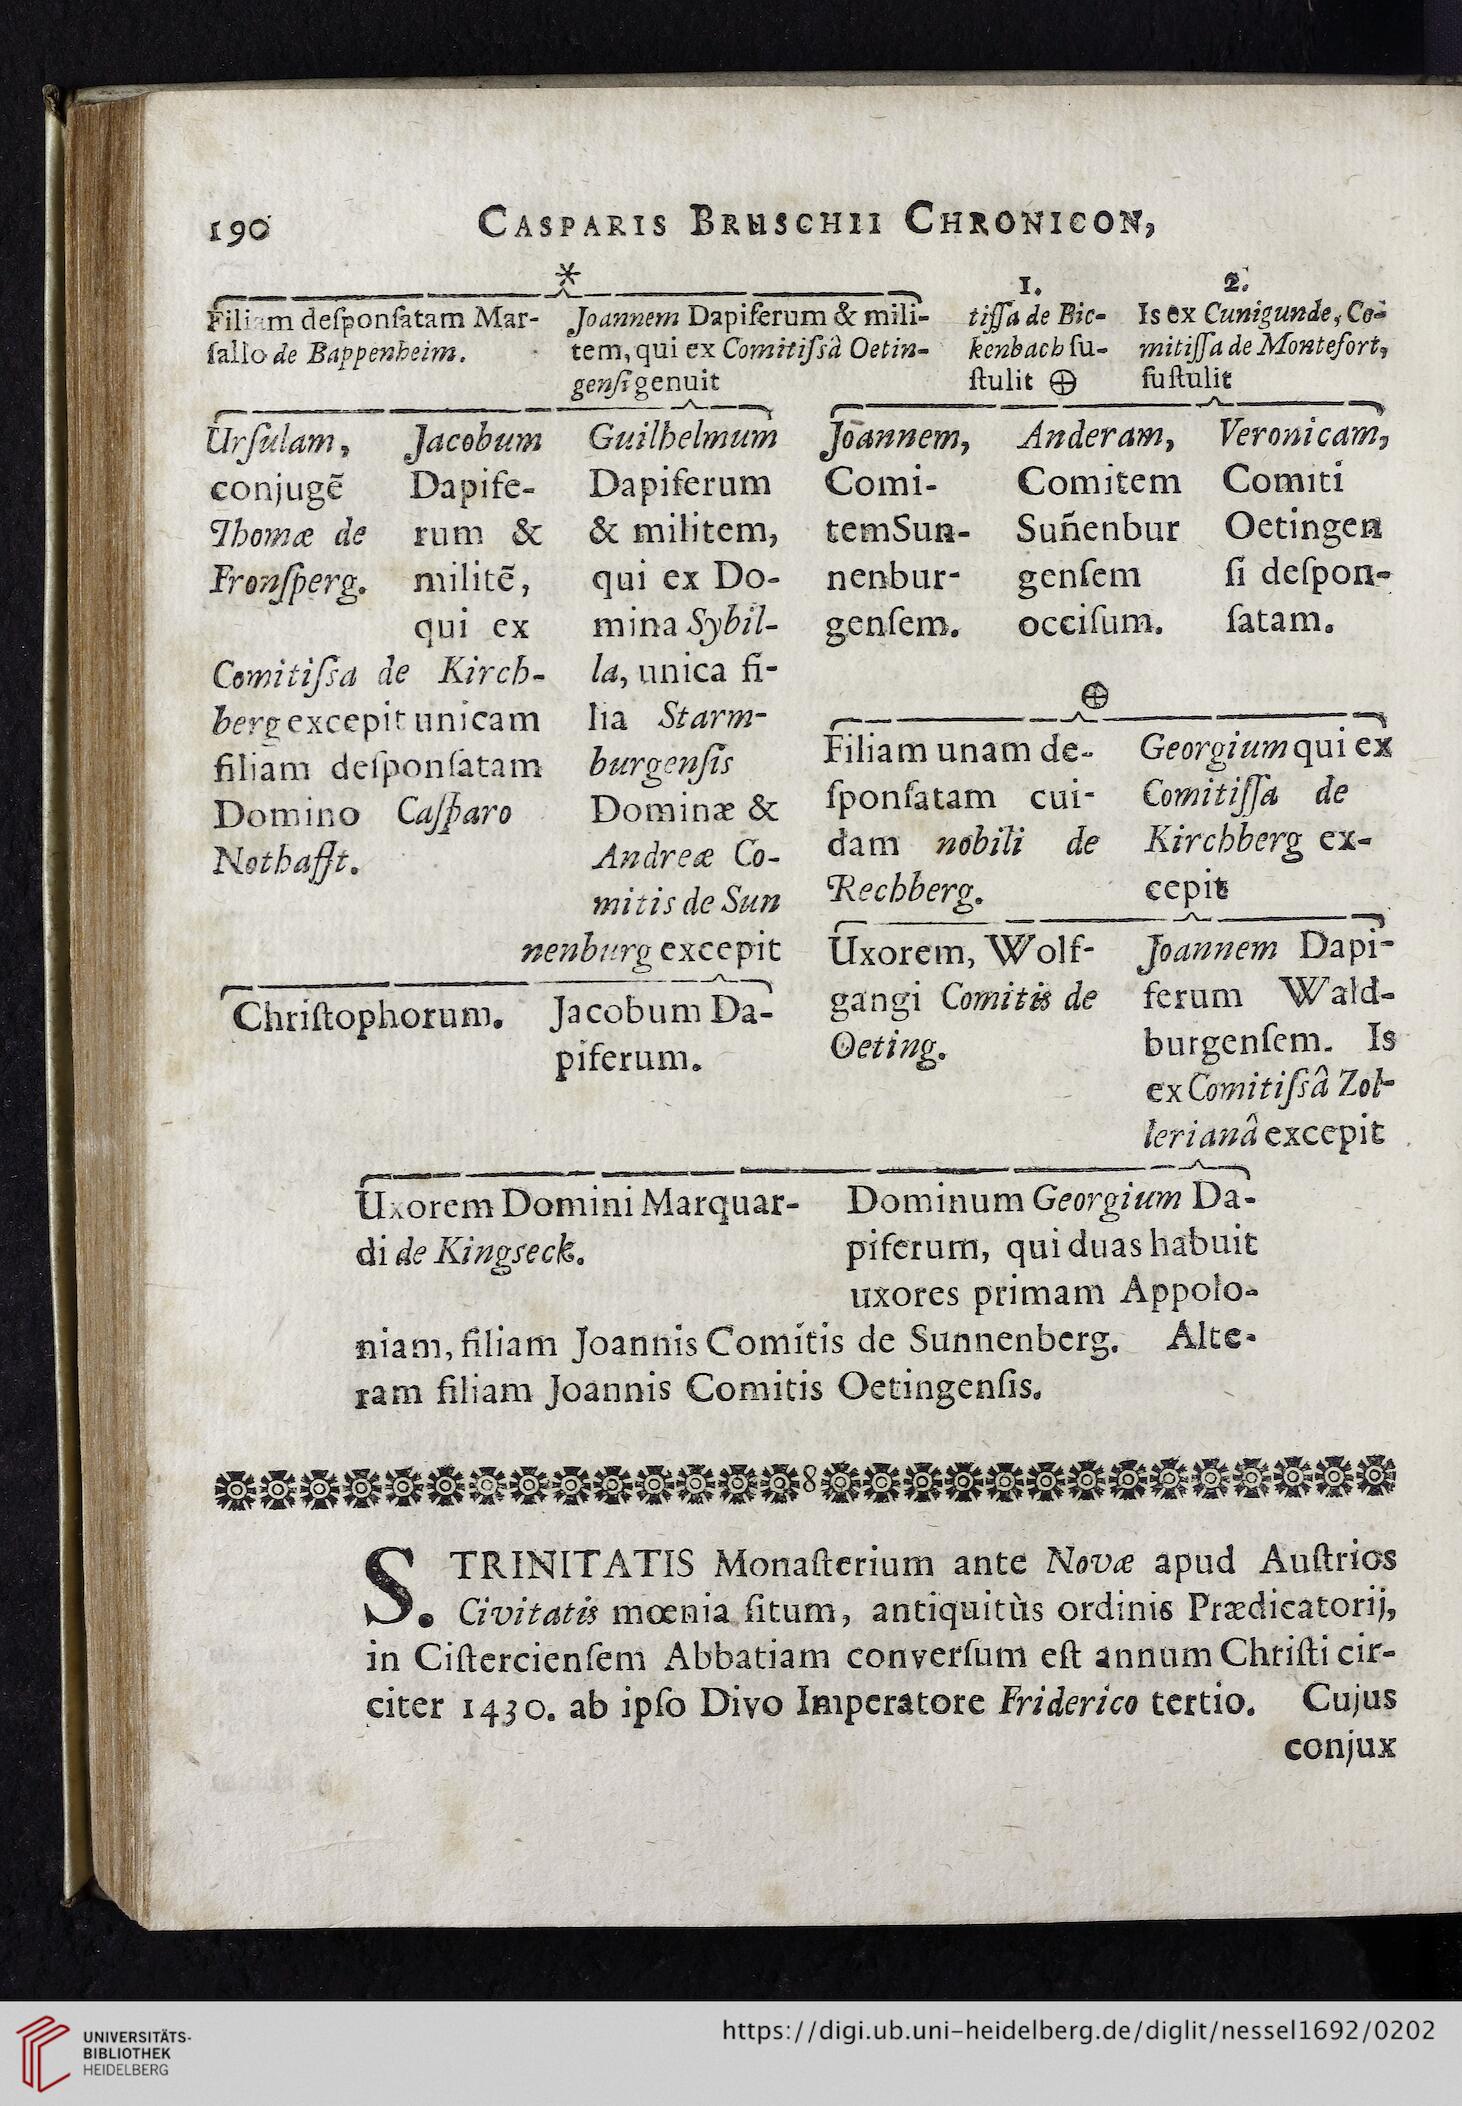 190
CASPARIS BRUSCHII CHRONICON,
*
Filiam deſponſatam Mar-
ſallo de Bappenheim.
Joannem Dapiferum & mili-
tem, qui ex Comitiſsâ Oetin-
genſi genuit
1.
tiſſa de Bic-
kenbach ſu-
ſtulit ⊕
2.
Is ex Cunigunde, Co-
mitiſſa de Montefort,
ſuſtulit
Urſulam,
conjugẽ
Thomæ de
Fronſperg.
Jacobum
Dapife-
rum &
militẽ,
qui ex
Comitiſsa de Kirch-
berg excepit unicam
filiam deſponſatam
Domino Caſparo
Nothafft.
Guilhelmum
Dapiferum
& militem,
qui ex Do-
mina Sybil-
la, unica fi-
lia Starm-
burgenſis
Dominæ &
Andreæ Co-
mitis de Sun
nenburg excepit
Chriſtophorum.
Jacobum Da-
piferum.
Joannem,
Comi-
temSun-
nenbur-
genſem.
Anderam,
Comitem
Suñenbur
genſem
occiſum.
Veronicam,
Comiti
Oetingen
ſi deſpon-
ſatam.
⊕
Filiam unam de-
ſponſatam cui-
dam nobili de
Rechberg.
Georgium qui ex
Comitiſſa de
Kirchberg ex-
cepit
Uxorem, Wolf-
gangi Comitis de
Oeting.
Joannem Dapi-
ferum Wald-
burgenſem. Is
ex Comitiſsâ Zol-
lerianâ excepit
Uxorem Domini Marquar-
di de Kingseck.
Dominum Georgium Da-
piferum, qui duas habuit
uxores primam Appolo-
niam, filiam Joannis Comitis de Sunnenberg. Alte-
ram filiam Joannis Comitis Oetingenſis.
S. TRINITATIS Monaſterium ante Novæ apud Auſtrios
Civitatis mœnia ſitum, antiquitùs ordinis Prædicatorij,
in Ciſtercienſem Abbatiam converſum eſt annum Chriſti cir-
citer 1430. ab ipſo Divo Imperatore Friderico tertio. Cujus
conjux
UNIVERSITÄTS-
BIBLIOTHEK
HEIDELBERG
https://digi.ub.uni-heidelberg.de/diglit/nessel1692/0202